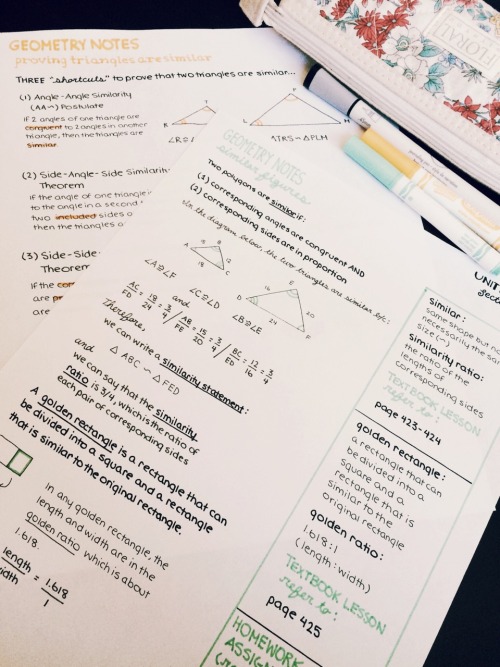 GEOMETRY NOTES
proving triangles are similar
THREE "shortcuts" to prove that two triangles are similar...
(1) Angle-Angle Similarity
(AA~) Postulate
If 2 angles of one triangle are
congruent to 2 angles in another
triangle, then the triangles are
similar.
T
R
P
L
M
∠R≅
△TRS ~ △PLM
(2) Side-Angle-Side Similarity
Theorem
If the angle of one triangle i
to the angle in a second t
two included sides a
then the triangles a
(3) Side-Side-
Theorem
If the cor
are pr
are
GEOMETRY NOTES
similar figures
Two polygons are similar if:
(1) corresponding angles are congruent AND
(2) corresponding sides are in proportion
In the diagram below, the two triangles are similar bc:
A
18
B
15
12
C
D
E
F
20
16
24
∠A≅∠F
∠C≅∠D
∠B≅∠E
and
AC/FD = 18/24 = 3/4 / AB/FE = 15/20 = 3/4 / BC/ED = 12/16 = 3/4
Therefore,
we can write a similarity statement:
△ABC ~ △FED
and
we can say that the similarity
ratio is 3/4, which is the ratio of
each pair of corresponding sides
A golden rectangle is a rectangle that can
be divided into a square and a rectangle
that is similar to the original rectangle.
In any golden rectangle, the
length and width are in the
golden ratio which is about
1.618.
length/width = 1.618/1
UNIT
Similar:
same shape but no
necessarily the sam
size (~)
Similarity ratio:
the ratio of the
lengths of
corresponding sides
TEXTBOOK LESSON
refer to:
page 423-424
golden rectangle:
a rectangle that can
be divided into a
square and a
rectangle that is
similar to the
original rectangle
golden ratio:
1.618:1
(length:width)
TEXTBOOK LESSON
refer to:
page 425
HOMEWORK
ASSIGN